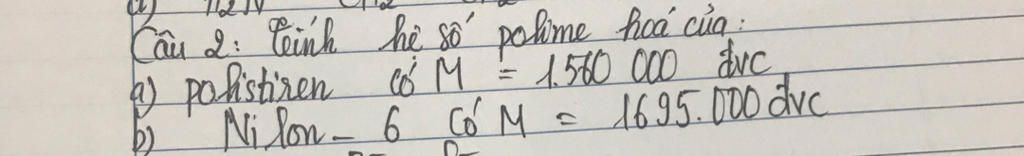 Câu 2: Tính hệ số polime hoá của:
a) polistiren có M = 1.560 000 đvc
b) Nilon - 6 có M = 1695.000 đvc